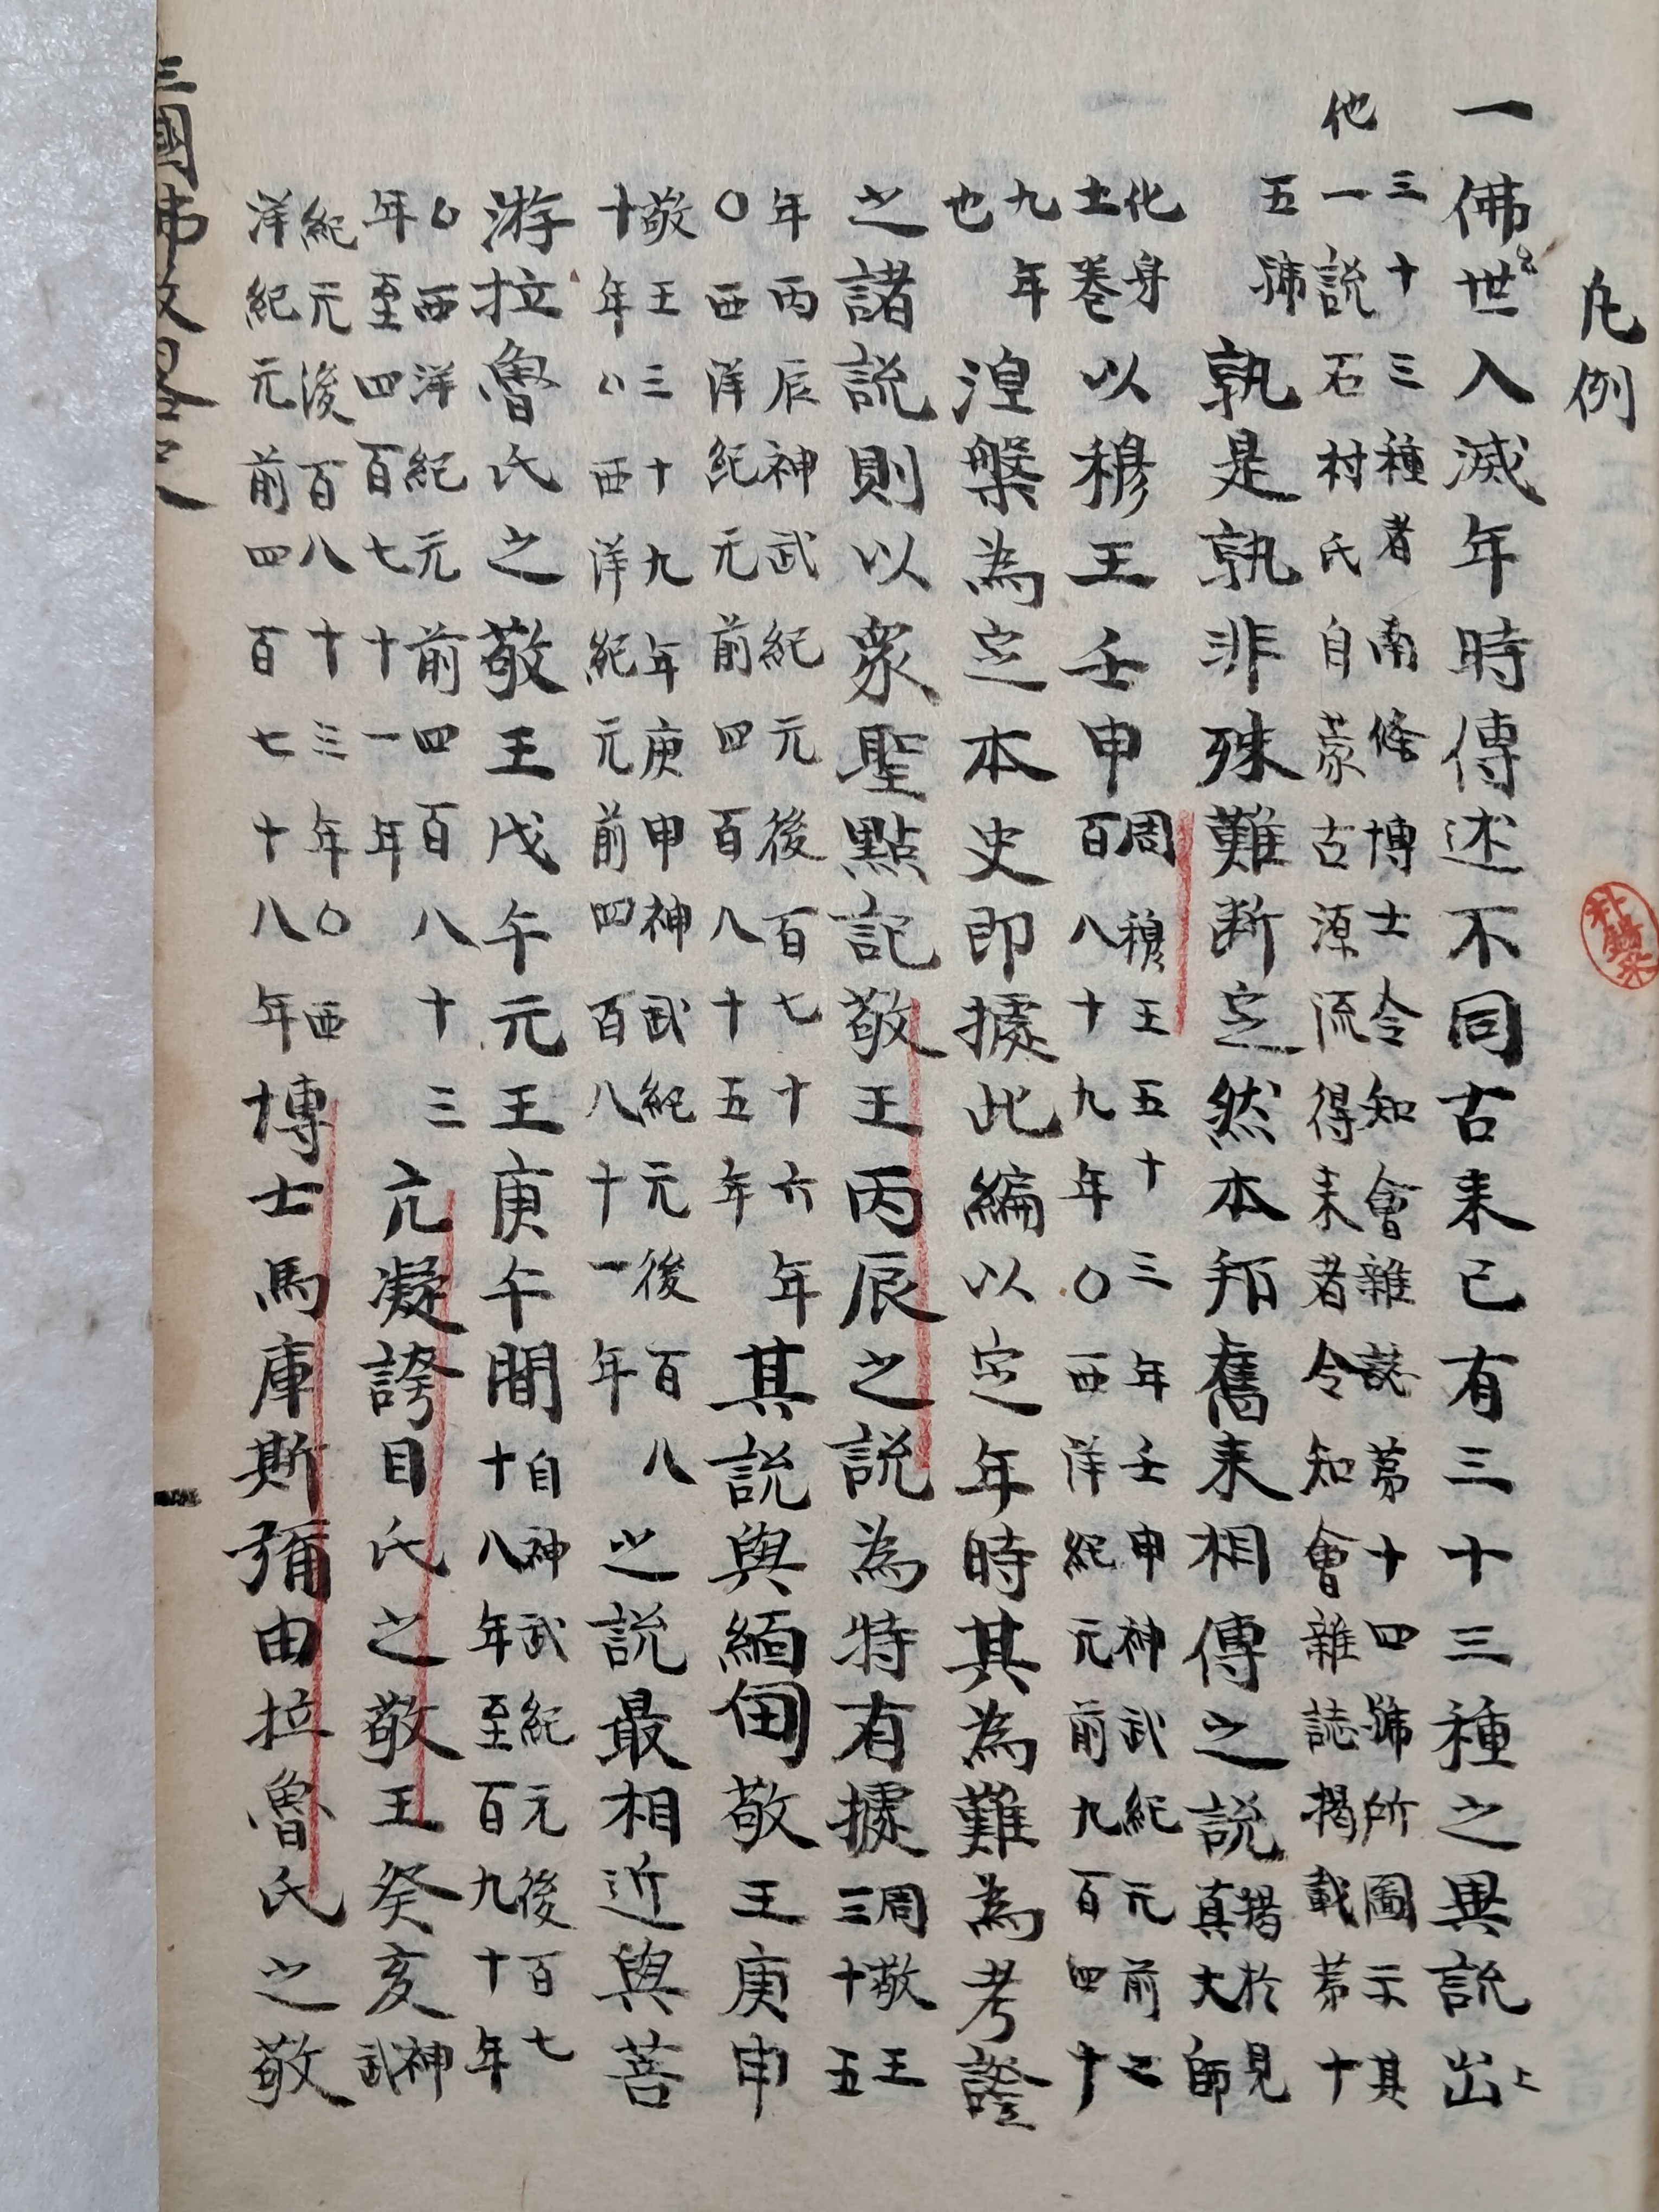 凡例
一佛世入滅年時傳述不同古来已有三十三種之異説出
三十三種者南條博士令知會雜誌第十四號所圖示其
他一説石村氏自蒙古源流得来者令知會雜誌揭載第十
五號孰是孰非殊難断定然本邦舊来相傳之説於見
真大師
化身
土卷以穆王壬申周穆王五十三年壬申神武紀元前二
百八十九年〇西洋紀元前九百四十
九年
也湼槃為定本史即據此編以定年時其為難為考證
之諸説則以衆聖點記敬王丙辰之説為特有據周敬王
三十五
年丙辰神武紀元後百七十六年
〇西洋紀元前四百八十五年其説與緬甸敬王庚申
敬王三十九年庚申神武紀元後百八
十年〇西洋紀元前四百八十一年之説最相近與菩
游拉魯氏之敬王戊午元王庚午間自神武紀元後百七
十八年至百九十年
〇西洋紀元前四百八十三
年至四百七十一年亢凝誇目氏之敬王癸亥神
武
紀元後百八十三年〇西
洋紀元前四百七十八年博士馬庫斯彌由拉魯氏之敬
三國佛教畧史
一